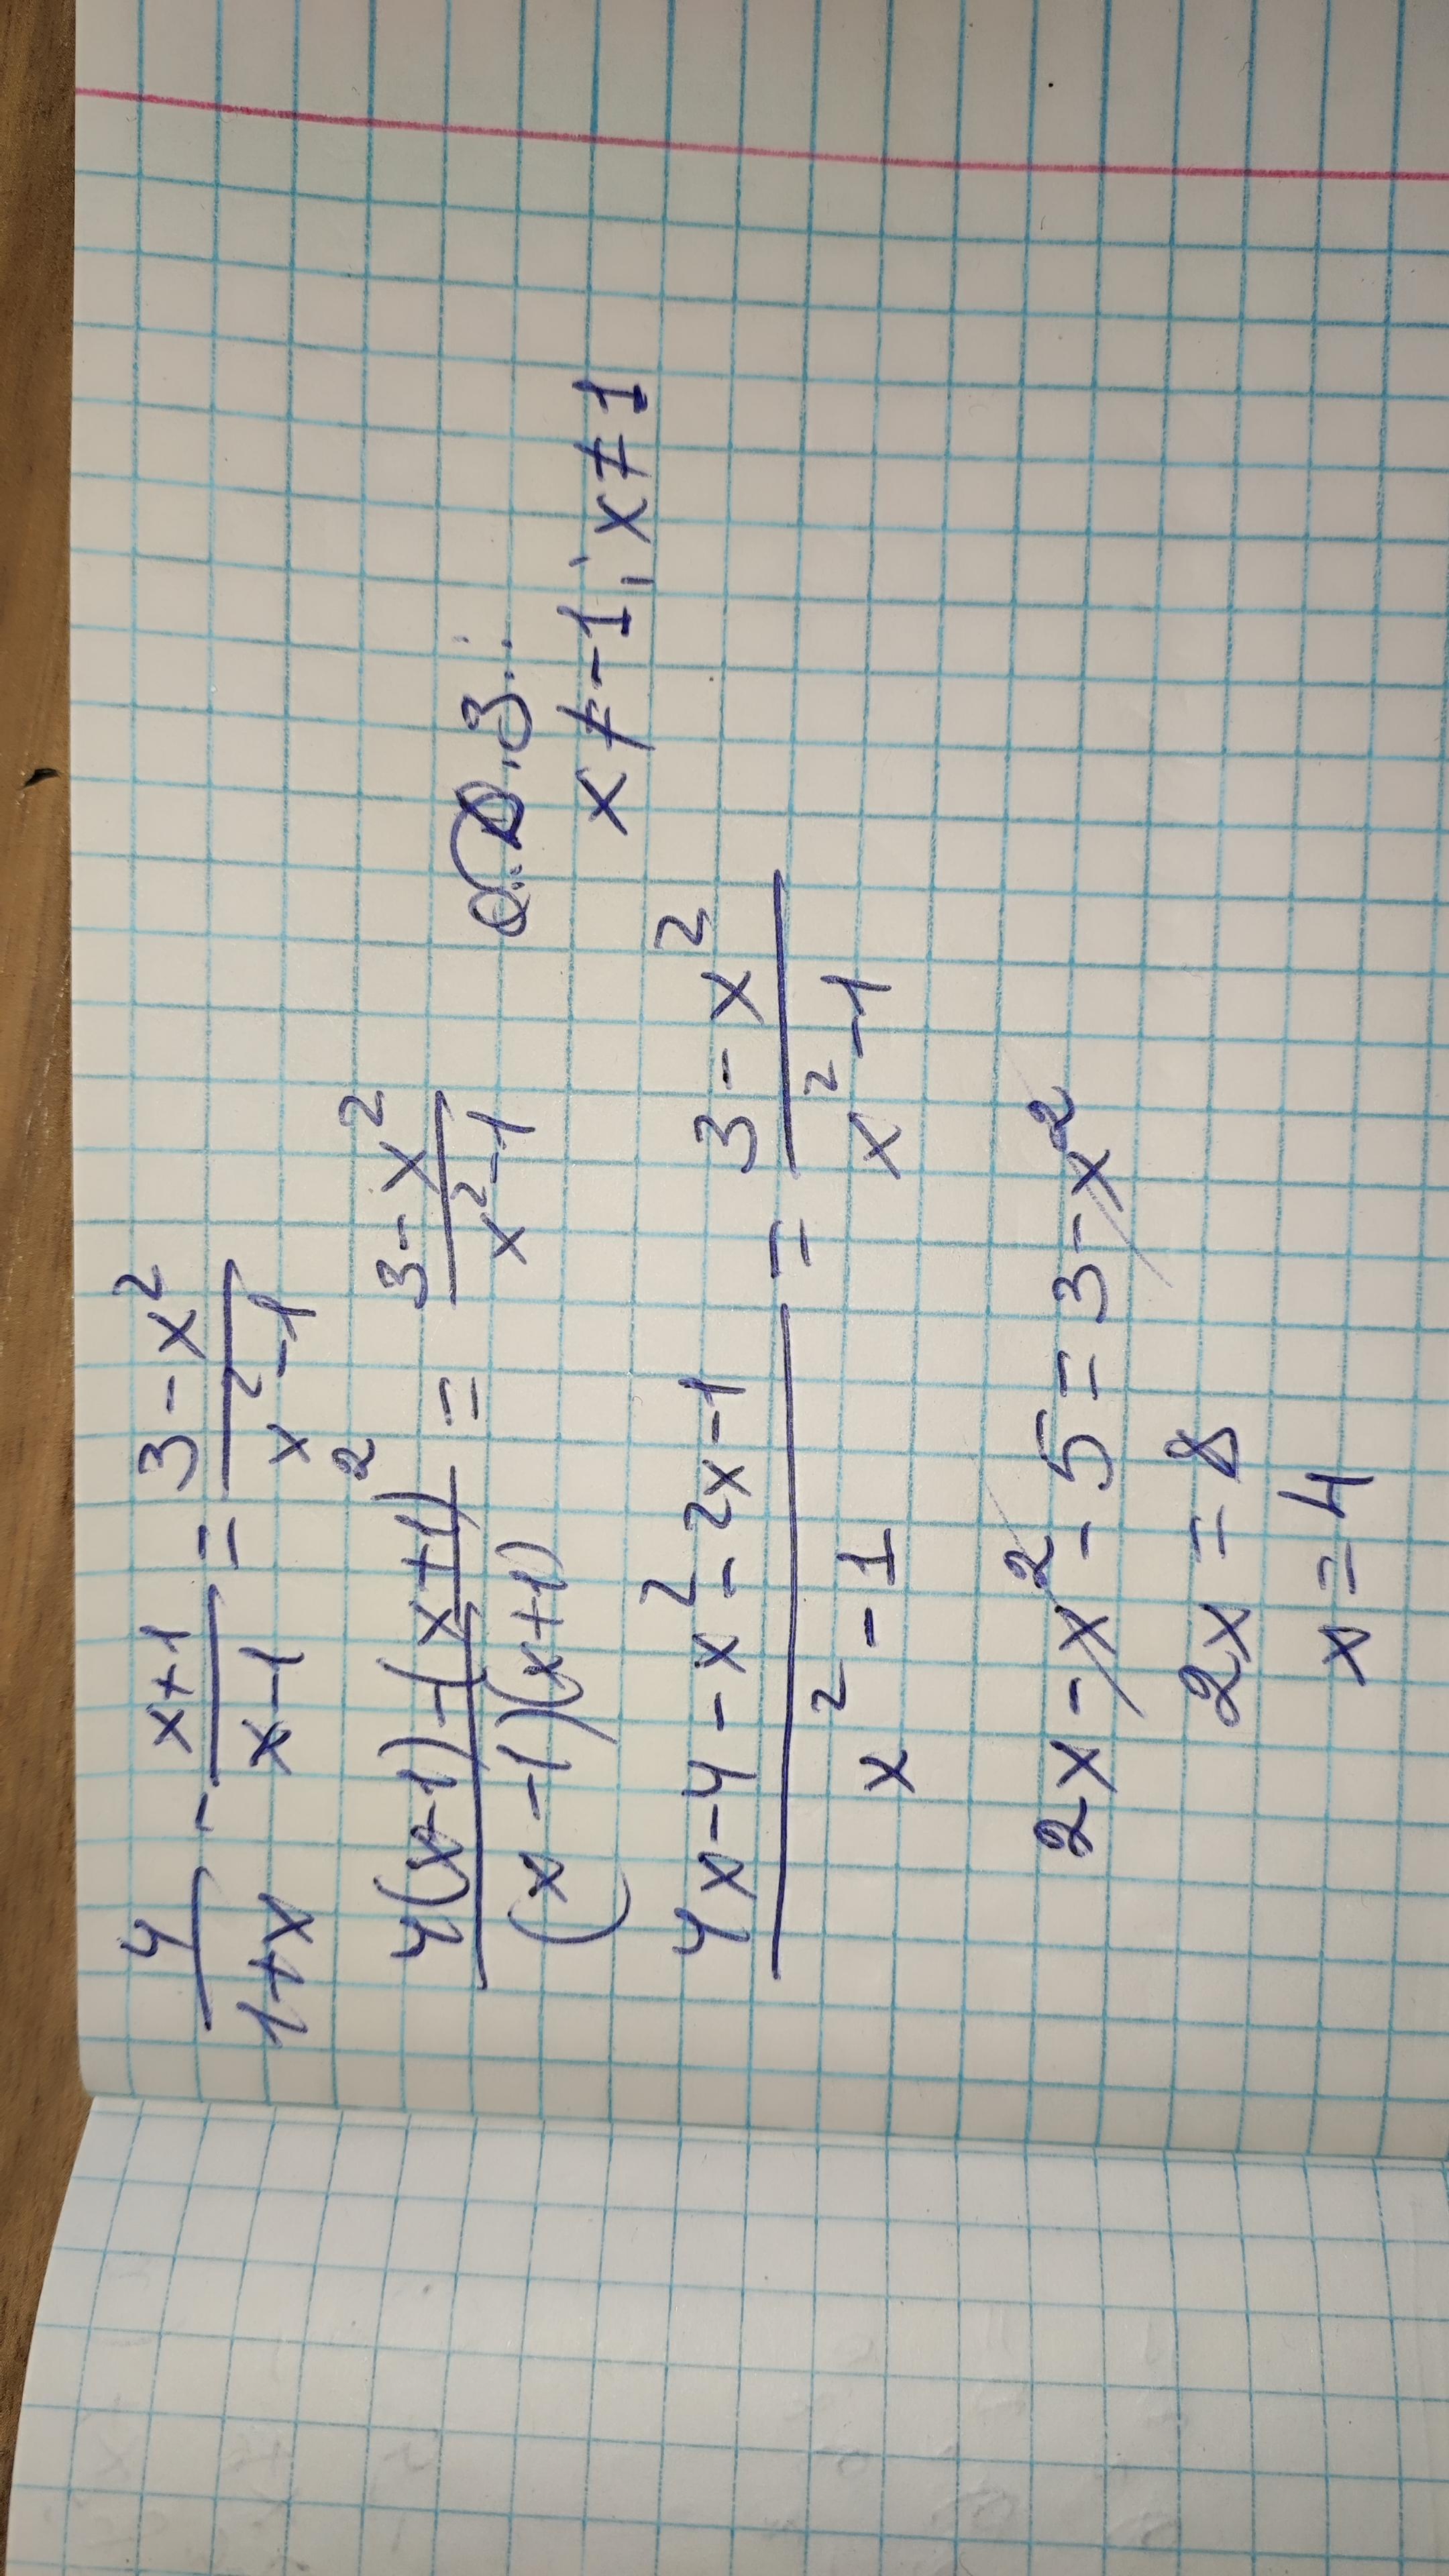 4/(1+x) - (x+1)/(x-1) = (3-x²)/(x²-1)
(4(x-1)-(x+1)²)/((x-1)(x+1)) = (3-x²)/(x²-1)
О.Д.З.:
x≠-1, x≠1
(4x-4-x²-2x-1)/(x²-1) = (3-x²)/(x²-1)
2x-x²-5=3-x²
2x=8
x=4